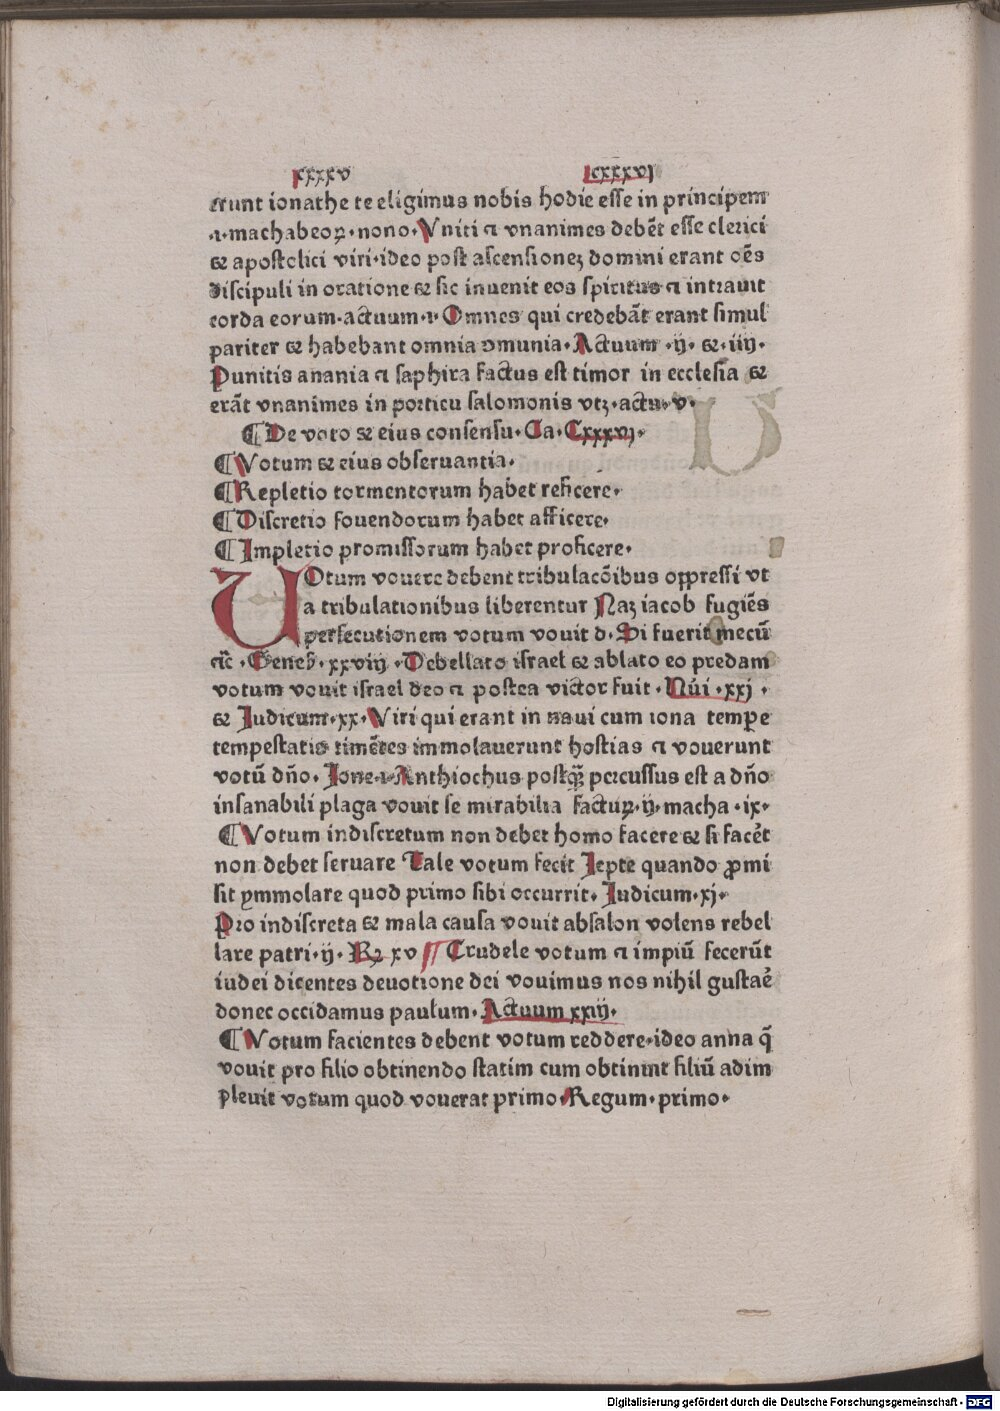 cxxxv cxxxvj
erunt ionathe te eligimus nobis hodie esse in principem
.1. machabeoꝝ. nono. Vniti ⁊ vnanimes debēt esse clerici
& apostolici viri. ideo post ascensioneȝ domini erant oēs
discipuli in oratione & sic inuenit eos spiritus ⁊ intrauit
corda eorum. actuum. 1. Omnes qui credebāt erant simul
pariter & habebant omnia ɔmunia. Actuum .ij. & .iiij.
Punitis anania ⁊ saphira factus est timor in ecclesia &
erāt vnanimes in porticu salomonis vtȝ. actu. v.
¶ De voto & eius consensu. Ca. Cxxxvj.
¶ Votum & eius obseruantia.
¶ Repletio tormentorum habet reficere.
¶ Discretio fouendorum habet afficere.
¶ Impletio promissorum habet proficere.
VOtum vouere debent tribulacōibus oppressi vt
a tribulationibus liberentur Naȝ iacob fugiēs
persecutionem votum vouit d. Si fuerit mecū
⁊c̄. Geneš. xxviij. Debellato israel & ablato eo predam
votum vouit israel deo ⁊ postea victor fuit. Nūi .xxj.
& Judicum. xx. Viri qui erant in naui cum iona tempe
tempestatis timētes immolauerunt hostias ⁊ vouerunt
votū dño. Jone. 1. Anthiochus postq̄ꝫ percussus est a dño
insanabili plaga vouit se mirabilia factuꝝ. ij. macha. ix.
¶ Votum indiscretum non debet homo facere & si facēt
non debet seruare Tale votum fecit Jepte quando ꝓmi
sit ymmolare quod primo sibi occurrit. Judicum. xj.
Pro indiscreta & mala causa vouit absalon volens rebel
lare patri. ij. Rꝫ xv ¶ Crudele votum ⁊ impiū fecerūt
iudei dicentes deuotione dei vouimus nos nihil gustaē
donec occidamus paulum. Actuum xxiij.
¶ Votum facientes debent votum reddere. ideo anna q̄
vouit pro filio obtinendo statim cum obtinuit filiū adim
pleuit votum quod vouerat primo. Regum. primo.
Digitalisierung gefördert durch die Deutsche Forschungsgemeinschaft - DFG